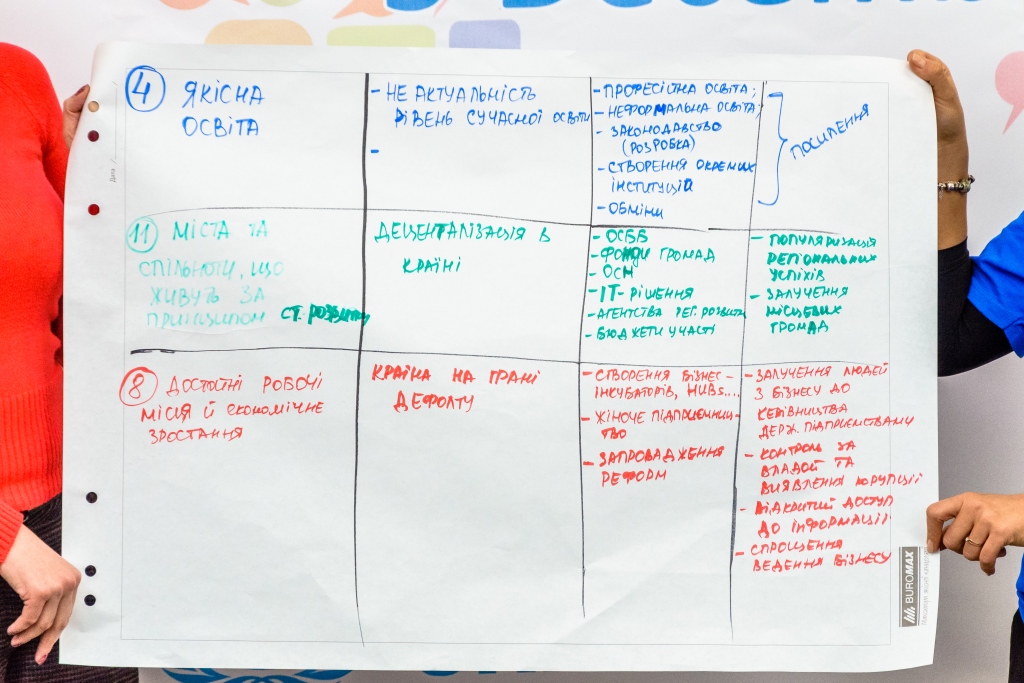 4 ЯКІСНА
ОСВІТА
- НЕ АКТУАЛЬНІСТЬ
РІВЕНЬ СУЧАСНОЇ ОСВІТИ
-
- ПРОФЕСІЙНА ОСВІТА;
- НЕФОРМАЛЬНА ОСВІТА;
- ЗАКОНОДАВСТВО
(РОЗРОБКА)
- СТВОРЕННЯ ОКРЕМИХ
ІНСТИТУЦІЙ
- ОБМІНИ
ПОСИЛЕННЯ
11 МІСТА ТА
СПІЛЬНОТИ, ЩО
ЖИВУТЬ ЗА
ПРИНЦИПОМ СТ. РОЗВИТКУ
ДЕЦЕНТАЛІЗАЦІЯ В
КРАЇНІ
- ОСББ
- ФОНДИ ГРОМАД
- ОСН
- ІТ-РІШЕННЯ
- АГЕНТСТВА РЕГ. РОЗВИТКУ
- БЮДЖЕТИ УЧАСТІ
- ПОПУЛЯРИЗАЦІЯ
РЕГІОНАЛЬНИХ
УСПІХІВ
- ЗАЛУЧЕННЯ
МІСЦЕВИХ
ГРОМАД
8 ДОСТОЙНІ РОБОЧІ
МІСЦЯ Й ЕКОНОМІЧНЕ
ЗРОСТАННЯ
КРАЇНА НА ГРАНІ
ДЕФОЛТУ
- СТВОРЕННЯ БІЗНЕС-
ІНКУБАТОРІВ, HUBs....
- ЖІНОЧЕ ПІДПРИЄМНИЦ-
ТВО
- ЗАПРОВАДЖЕННЯ
РЕФОРМ
- ЗАЛУЧЕННЯ ЛЮДЕЙ
З БІЗНЕСУ ДО
КЕРІВНИЦТВА
ДЕРЖ. ПІДПРИЄМСТВАМИ
- КОНТРОЛЬ ЗА
ВЛАДОЙ ТА
ВИЯВЛЕННЯ КОРУПЦІЇ
- ВІДКРИТИЙ ДОСТУП
ДО ІНФОРМАЦІЇ
- СПРОЩЕННЯ
ВЕДЕННЯ БІЗНЕСУ
BUROMAX